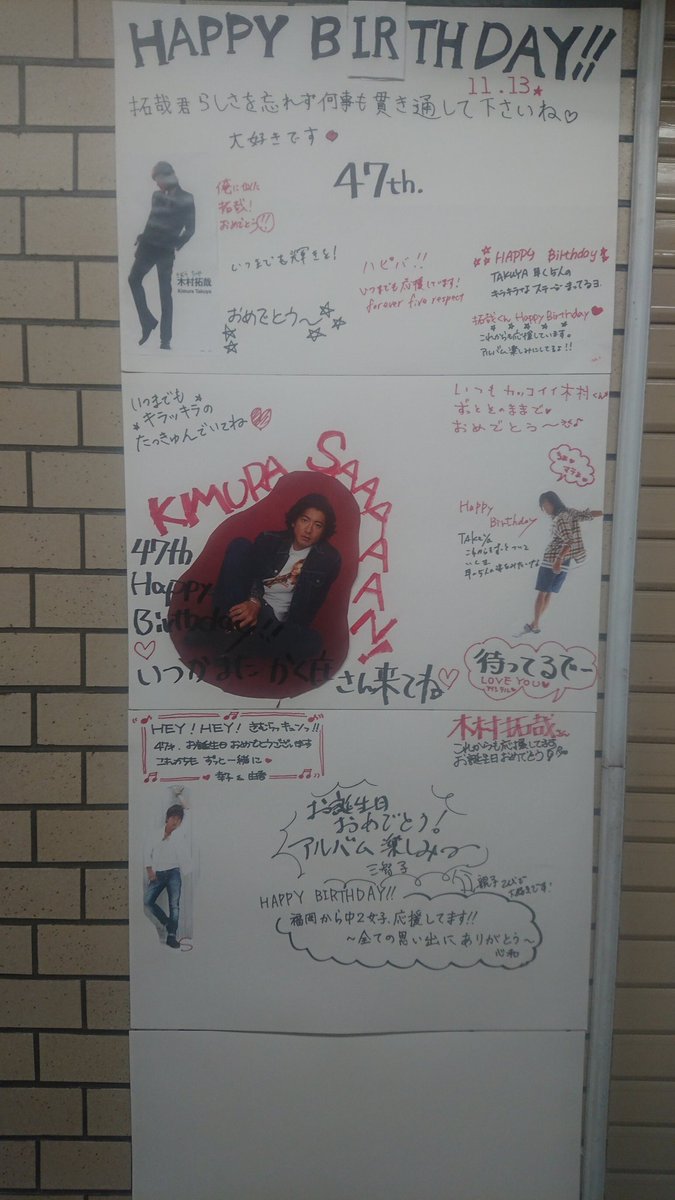 HAPPY BIRTHDAY!!
11.13
拓哉君らしさを忘れず何事も貫き通して下さいね♡
大好きです
47th.
拓哉!
おめでとう!!
木村拓哉
Kimura Takuya
いつまでも輝きを!
おめでとう〜
ハピバ!!
いつまでも応援しています!
forever five respect
HAPPY Birthday
TAKUYA
キラキラな ステージ まってるヨ
拓哉くん Happy Birthday
これからも応援しています。
アルバム楽しみにしてるよ!!
いつまでも
キラッキラの
たっきゅんでいてね
いつもカッコイイ木村くん
ずっとそのままで
おめでとう〜
KIMURA SAAAAAN!
47th
Happy
Birthday!!
いつかまた かく庄さん来てね♡
Happy
Birthday
待ってるでー
LOVE YOU
HEY! HEY! きむらっキュンっ!!
47th. お誕生日おめでとうございます
これからも ずっと一緒に
木村拓哉さん
これからも応援してます
お誕生日おめでとう
お誕生日
おめでとう!
アルバム楽しみっ
三智子
HAPPY BIRTHDAY!!
福岡から中2女子、応援してます!!
〜全ての思い出に ありがとう〜